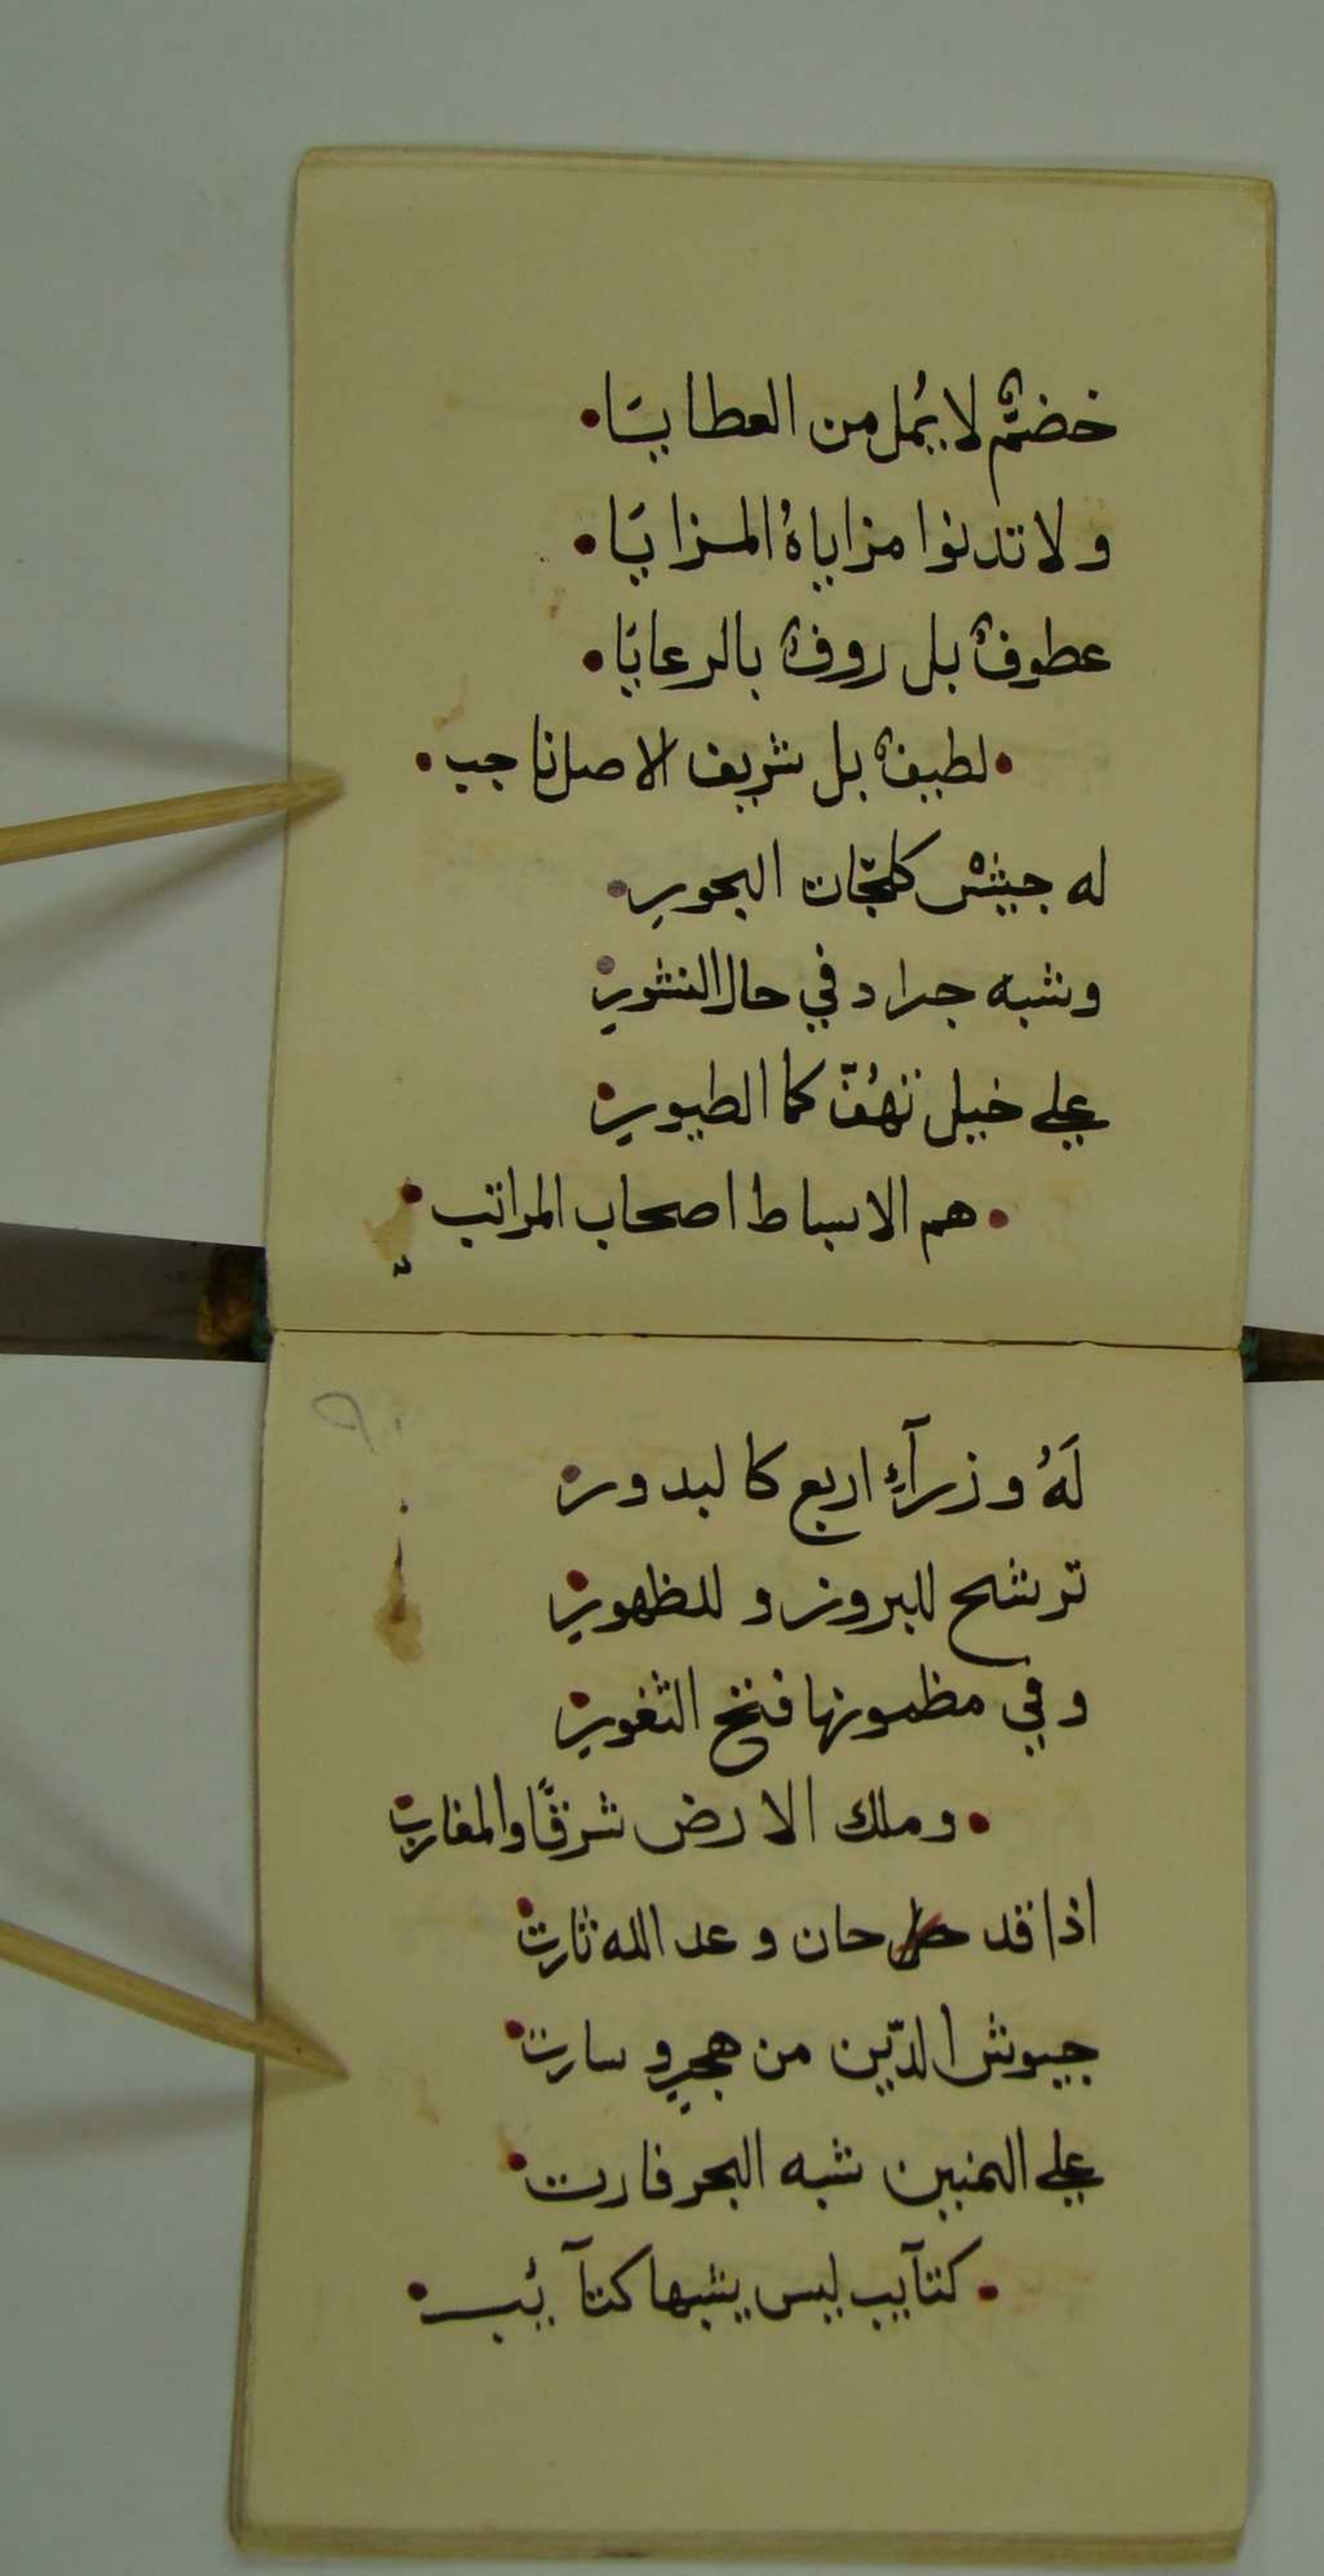 خضمٌّ لا يُمل من العطايَا •
و لا تدنوا مزاياهُ المزايَا •
عطوفٌ بل روفٌ بالرعايَا •
• لطيفٌ بل شريف الاصل ناجب •
له جيشْ كلجّات البحور •
وشبه جراد في حال النشور •
علي خيل تهُفّ كما الطيور •
• هم الاسباط اصحاب المراتب •
لَهُ وزرآءٍ اربع كالبدور •
ترشح للبروز و للظهور •
و في مظمونها فتح الثغور •
• و ملك الارض شرقًا والمغارب •
اذا قد حان وعد الله ثارت •
جيوش الدّين من هجرٍ و سارت •
علي اليمنين شبه البحر فارت •
• كتآيب ليس يشبها كتآئب •